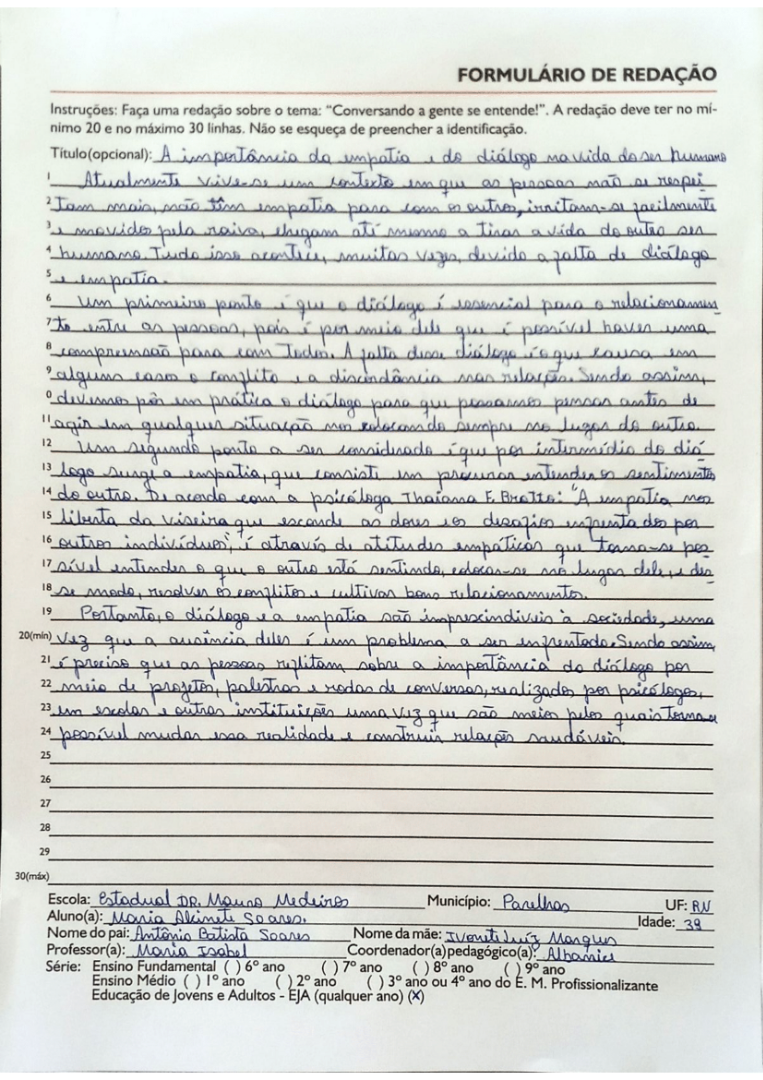 FORMULÁRIO DE REDAÇÃO
Instruções: Faça uma redação sobre o tema: "Conversando a gente se entende!". A redação deve ter no mí-
nimo 20 e no máximo 30 linhas. Não se esqueça de preencher a identificação.
Título(opcional): A importância da empatia e do diálogo na vida do ser humano
1 Atualmente vive-se um contexto em que as pessoas não se respei
2 tam mais, não têm empatia para com os outros, irritam-se facilmente
3 e movidos pela raiva, chegam até mesmo a tirar a vida do outro ser
4 humano. Tudo isso acontece, muitas vezes, devido a falta de diálogo
5 e empatia.
6 Um primeiro ponto é que o diálogo é essencial para o relacionamen
7 to entre as pessoas, pois é por meio dele que é possível haver uma
8 compreensão para com todos. A falta desse diálogo é o que causa em
9 alguns casos o conflito e a discordância nas relação. Sendo assim,
0 devemos pôr em prática o diálogo para que possamos pensar antes de
11 agir em qualquer situação nos colocando sempre no lugar do outro.
12 Um segundo ponto a ser considerado é que por intermédio do diá
13 logo surge a empatia, que consiste em procurar entender os sentimentos
14 do outro. De acordo com a psicóloga Thaiana F. Brotto: "A empatia nos
15 liberta da viseira que esconde as dores e os desafios enfrentados por
16 outros indivíduos", é através de atitudes empáticas que torna-se pos
17 sível entender o que o outro está sentindo, colocar-se no lugar dele, e des
18 se modo, resolver os conflitos e cultivar bons relacionamentos.
19 Portanto, o diálogo e a empatia são imprescindíveis à sociedade, uma
20(mín) vez que a ausência deles é um problema a ser enfrentado. Sendo assim,
21 é preciso que as pessoas reflitam sobre a importância do diálogo por
22 meio de projetos, palestras e rodas de conversas, realizados por psicólogos,
23 em escolas e outras instituições uma vez que são meios pelos quais torna-se
24 possível mudar essa realidade e construir relação saudáveis.
25
26
27
28
29
30(máx)
Escola: Estadual DR. Mauro Medeiros Município: Parelhas UF: RN
Aluno(a): Maria Alcinete Soares. Idade: 39
Nome do pai: Antônio Batista Soares Nome da mãe: Ivonete Luíz Marques
Professor(a): Maria Isabel Coordenador(a)pedagógico(a): Albanice
Série: Ensino Fundamental ( ) 6º ano ( ) 7º ano ( ) 8º ano ( ) 9º ano
Ensino Médio ( ) 1º ano ( ) 2º ano ( ) 3º ano ou 4º ano do E. M. Profissionalizante
Educação de Jovens e Adultos - EJA (qualquer ano) (X)